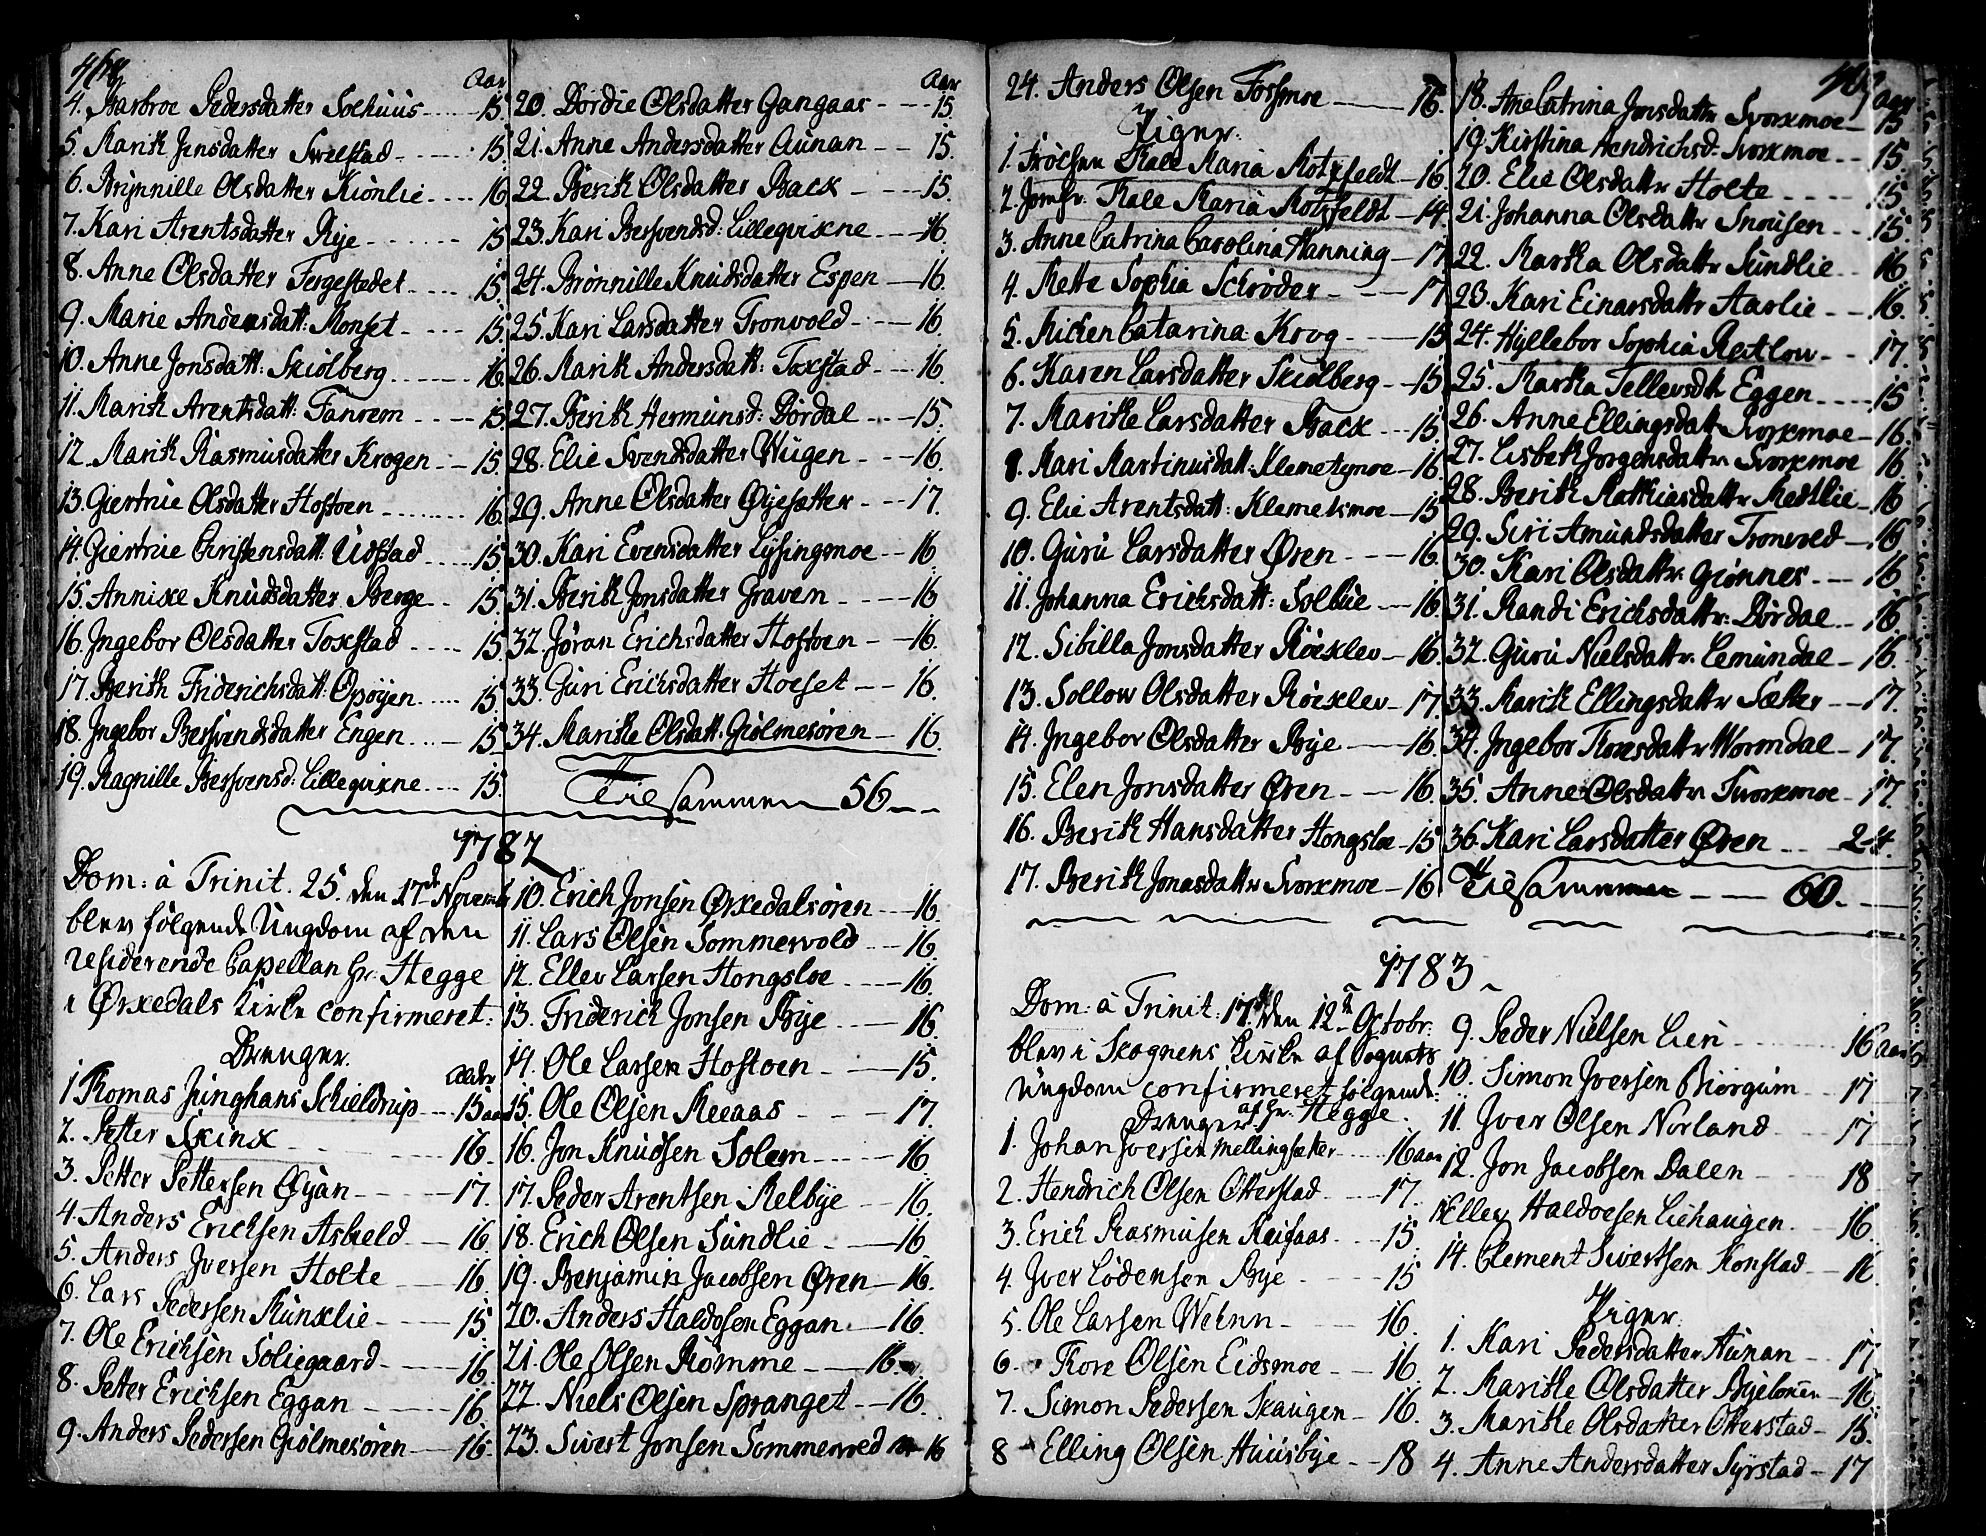 Aar
4. Barbroe Pedersdatter Solhuus 15.
5. Marith Jensdatter Svelstad 15.
6. Brynnille Olsdatter Kiønlie 16
7. Kari Arentsdatter Rye 15
8. Anne Olsdatter Fergestedet 15.
9. Marie Andersdatt: Monset 15.
10. Anne Jonsdatt: Skiølberg 16
11. Marith Arentsdatt: Fanrem 15
12. Marith Rasmusdatter Krogen 15
13. Giertrue Olsdatter Hoftoen 16
14. Giertrue Christensdatt. Udstad 15
15. Annike Knudsdatter Berge 15
16. Ingebor Olsdatter Foxstad 15
17. Berith Friderichsdatt. Opøyen 15
18. Ingebor Bersvendsdatter Engen 15
19. Ragnille Bersvensd: Lillequikne 15.
Aar
20. Dordie Olsdatter Gangaas 15.
21. Anne Andersdatter Aunan 15.
22. Berith Olsdatter Back 15.
23. Kari Bersvendsd: Lillequikne 16.
24. Brønnille Knudsdatter Espen 16.
25. Kari Larsdatter Tronvold 16
26. Marith Andersdatt: Foxstad 16.
27. Berith Hermunsd: Dørdal 15.
28. Elie Svendsdatter Wugen 16.
29. Anne Olsdatter Øyesætter 17.
30. Kari Evensdatter Lysingsmoe 16
31. Berith Jonsdatter Graven 16
32. Jøran Erichsdatter Hoftoen 16.
33. Guri Erichsdatter Hoeset 16.
34. Marithe Olsdatt. Giølmesøren 16.
Tilsammen 56
1782
Dom: à Trinit. 25. den 17de Novemb
blev følgende Ungdom af den
residerende Capellan Hr. Hegge
i Ørkedals Kirke confirmeret:
Drenger.
Alder
1 Thomas Junghans Schieldrup 15 aar
2. Petter Skinx 16.
3. Petter Pettersen Øyan 17.
4. Anders Erichsen Asbield 16.
5. Anders Iversen Holte 16
6. Lars Pedersen Runxlie 15
7. Ole Erichsen Soliegaard 16.
8. Petter Erichsen Eggan 16
9. Anders Pedersen Giølmesøren 16.
10. Erich Jonsen Ørkedalsøren 16.
11. Lars Olsen Sommervold 16
12. Ellev Larsen Hongsloe 16.
13. Friderich Jonsen Rye 16
14. Ole Larsen Hoftoen 15.
15. Ole Olsen Reeaas 17.
16. Jon Knudsen Solem 16
17. Peder Arentsen Melbye 16.
18. Erich Olsen Sundlie 16
19. Benjamin Jacobsen Øren 16.
20. Anders Haldosen Eggan 16.
21. Ole Olsen Rømme 16.
22. Niels Olsen Spranget 16.
23. Sivert Jonsen Sommervold 16
24. Anders Olsen Fossmoe 16.
Piger.
1. Frøchen Kale Maria Rotzfeldt 16
2. Jomfr. Kale Maria Rotzfeldt 14
3. Anne Catrina Carolina Hanning 17
4. Mette Sophia Schrøder 17
5. Micken Catarina Krog 15
6. Karen Larsdatter Skiølberg 15
7. Marithe Larsdatter Back 15
8. Mari Martinusdatt: Klemetsmoe 16
9. Elie Arentsdatt: Klemetsmoe 15
10. Guru Larsdatter Øren 16.
11. Johanna Erichsdatt: Solbue 16
12. Sibilla Jonsdatter Røcklev 16.
13. Sollow Olsdatter Røcklev 17.
14. Ingebor Olsdatter Rye 16
15. Elen Jonsdatter Øren 16.
16. Berith Hansdatter Hongsloe 15
17. Berith Jonasdattr Svorkmoe 16
Aar
18. Ane Catrina Jonsdattr Svorkmoe 15
19. Kirstina Hendrichsd: Svorkmoe 15.
20. Elie Olsdattr Holte 15
21. Johanna Olsdattr Snousen 15.
22. Martha Olsdattr Sundlie 16
23. Kari Einarsdattr Aarlie 16.
24. Hyllebor Sophia Reitlow 17.
25. Martha Tellevsdtr Eggen 15
26. Anne Ellingsdatt Svorkmoe 16.
27. Lisbeth Jørgensdattr. Svorkmoe 16
28. Berith Mathiasdattr Medlie 16
29. Siri Amundsdatter Tronvold 16
30. Kari Olsdattr. Giønnes 16
31. Randi Erichsdattr. Dørdal 16
32. Guru Nielsdattr. Lemundal 16.
33. Marith Ellingsdattr Sætter 17.
34. Ingebor Thoresdattr Wormdal 17.
35. Anne Olsdattr Svorkmoe 17.
36. Kari Larsdatter Øren 24.
Tilsammen 60.
1783
Dom: à Trinit: 17de den 12te Octobr.
blev i Skognens Kirke af Sognets
Ungdom confirmeret følgende
af Hr. Hegge.
Drenger
1. Johan Iversen Mellingsætter 16 aar
2. Hendrich Olsen Otterstad 17.
3. Erich Rasmusen Reisaas 15
4. Iver Lødensen Rye 15
5. Ole Larsen Wehnn 16.
6. Thore Olsen Eidsmoe 16.
7. Simon Pedersen Skaugen 16.
8 Elling Olsen Huusbye 18
9. Peder Nielsen Lien 16 aar
10. Simon Iversen Biørgum 17
11. Iver Olsen Norland 17
12. Jon Jacobsen Dalen 18
13 Ellev Haldoesen Liehaugen 16
14. Clement Sivertsen Konstad 16.
Piger
1. Kari Pedersdatter Aunan 17
2. Marithe Olsdatter Ryelonen 16.
3. Marithe Olsdatter Otterstad 15.
4. Anne Andersdatter Syrstad 17